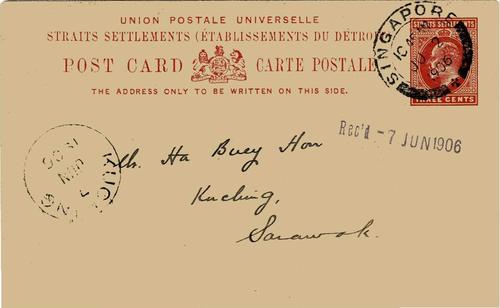 UNION POSTALE UNIVERSELLE
STRAITS SETTLEMENTS (ÉTABLISSEMENTS DU DÉTROIT
POST CARD CARTE POSTALE
THE ADDRESS ONLY TO BE WRITTEN ON THIS SIDE.
STRAITS SETTLEMENTS
THREE CENTS
SINGAPORE
1906
Rec'd - 7 JUN 1906
KUCHING
7
JUN
06
Mr. Ha Buey Hon
Kuching,
Sarawak.